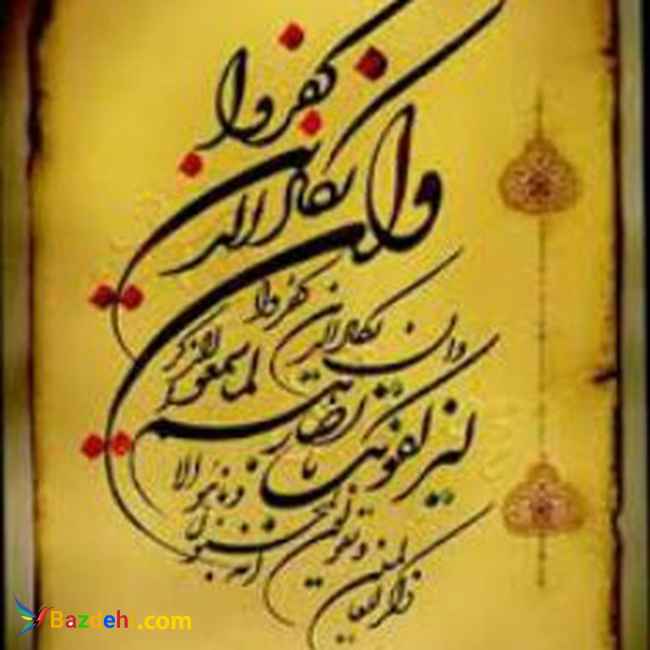 وان یکاد الذین کفروا
وان یکاد الذین کفروا
لیزلقونک بابصارهم لما سمعوا الذکر
و یقولون انه لمجنون و ما هو الا
ذکر للعالمین
Bazdeh .com